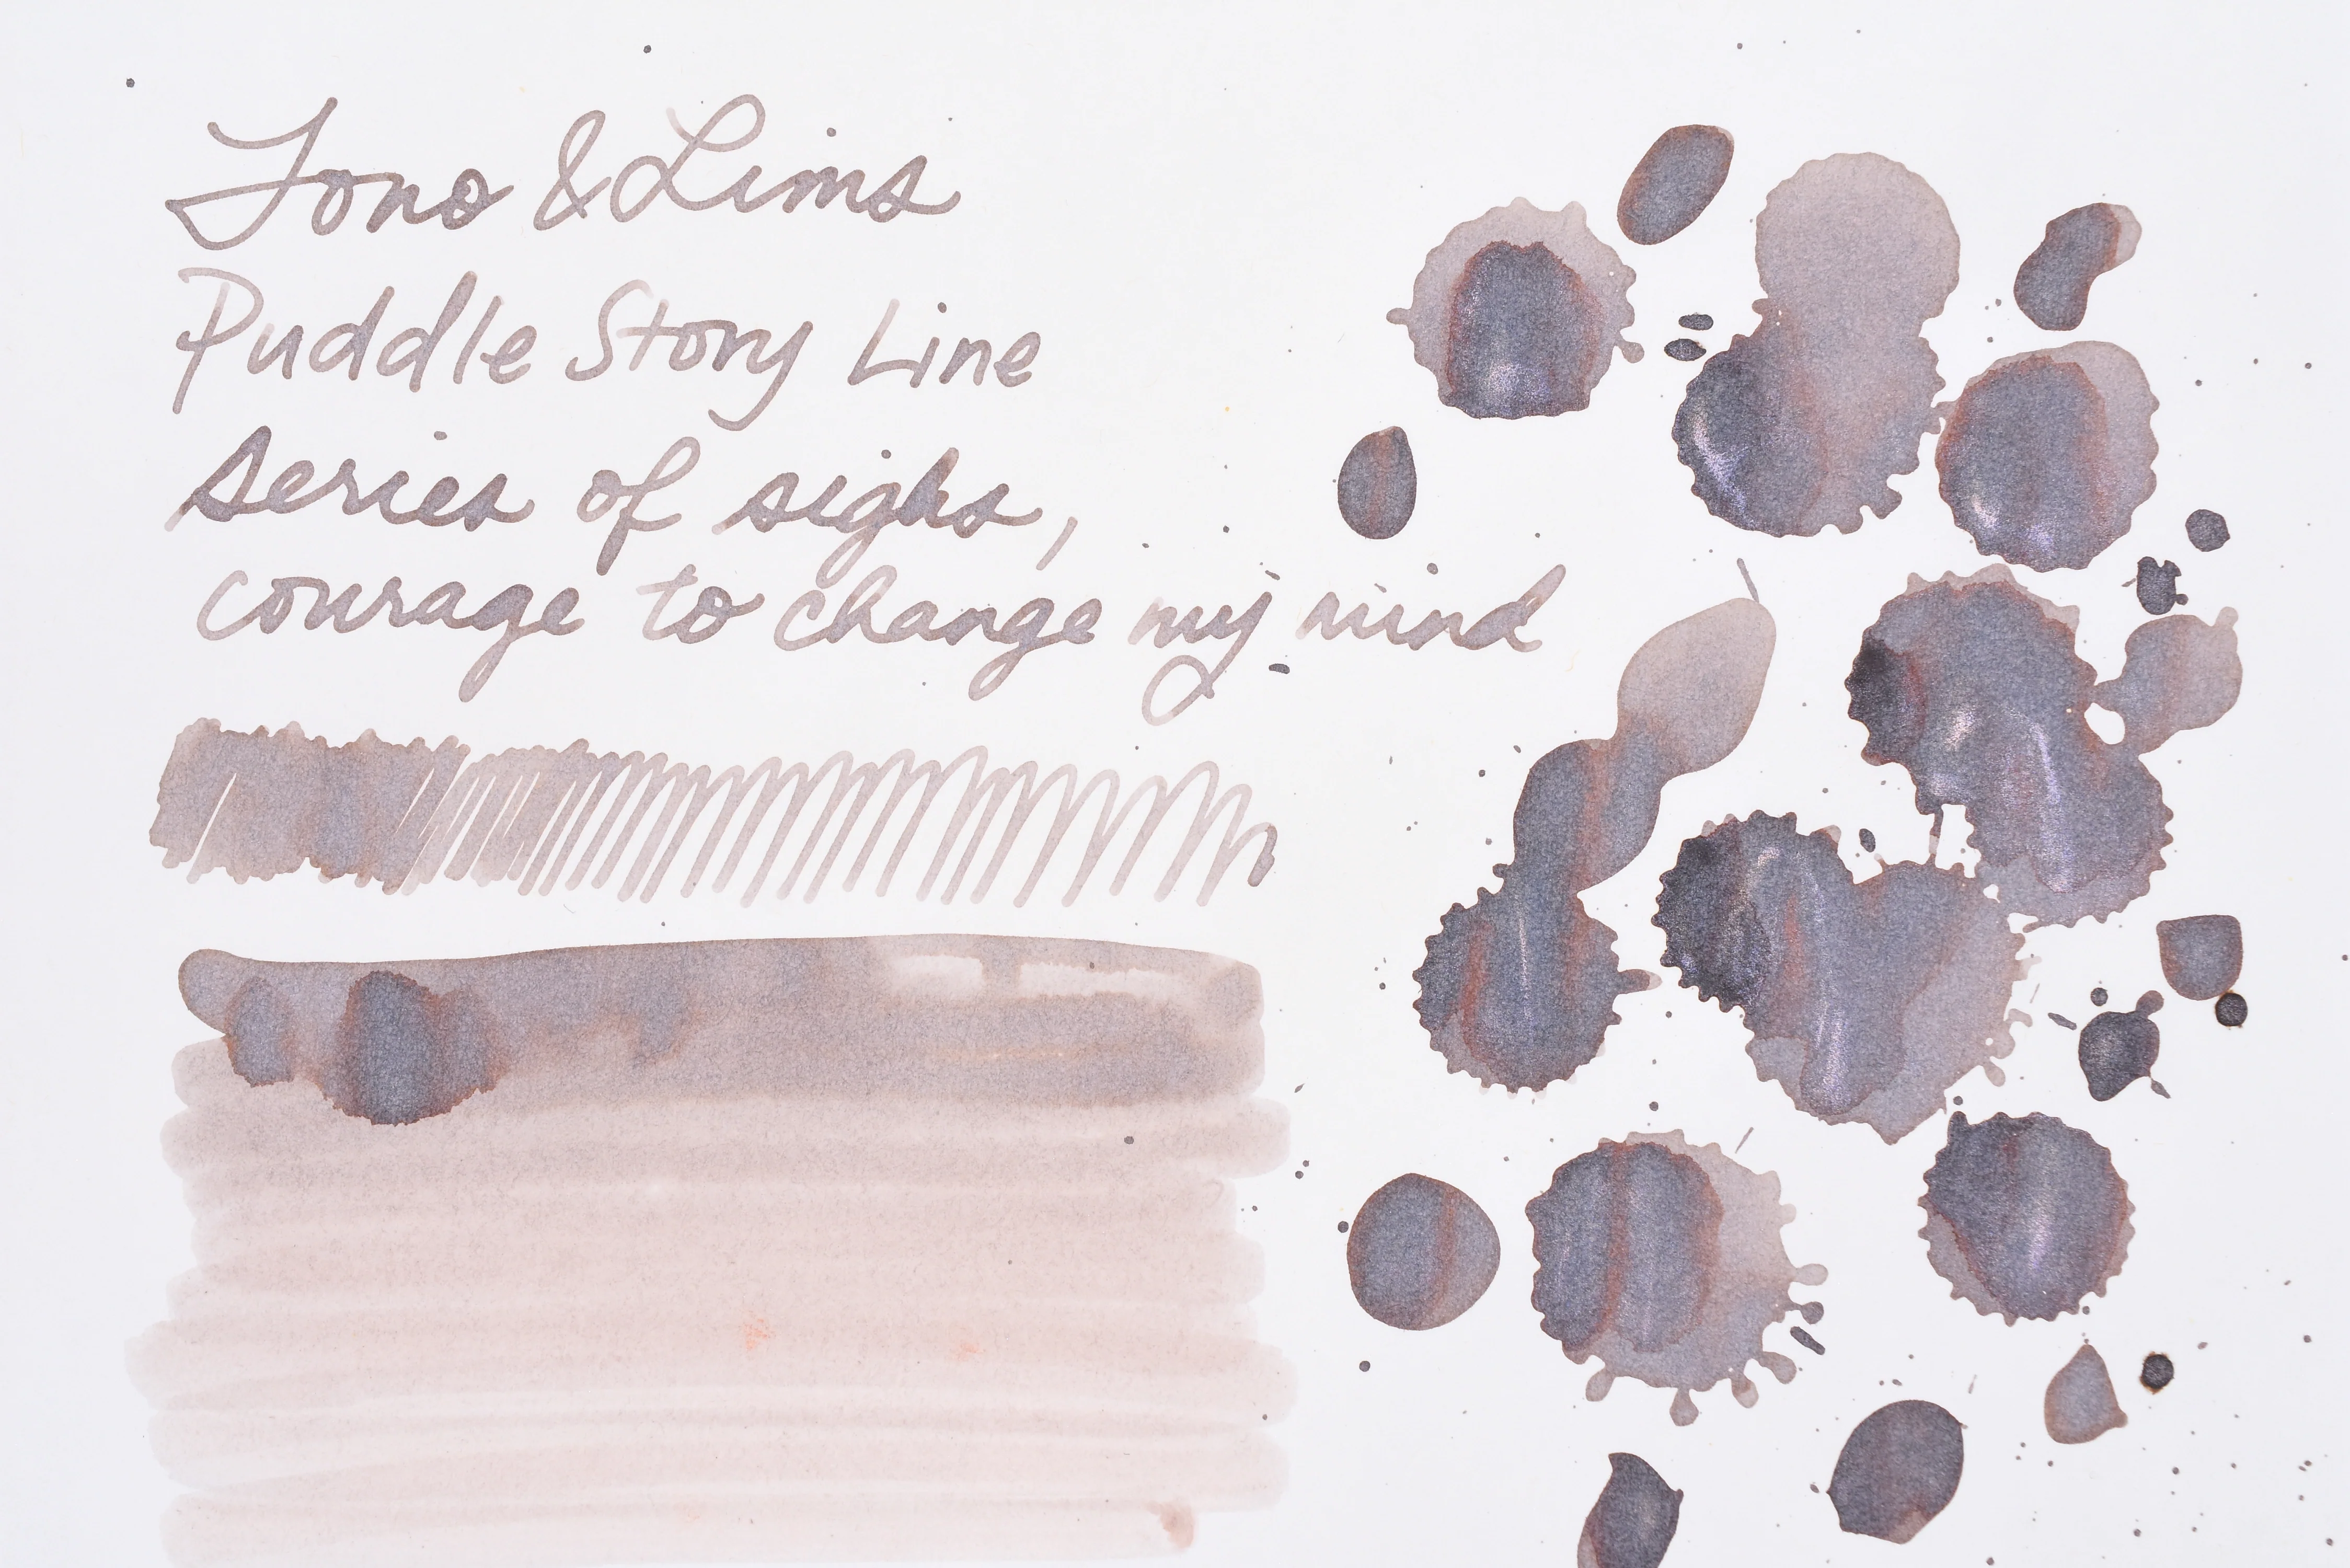 Tono & Lims
Puddle Story Line
series of sighs,
courage to change my mind